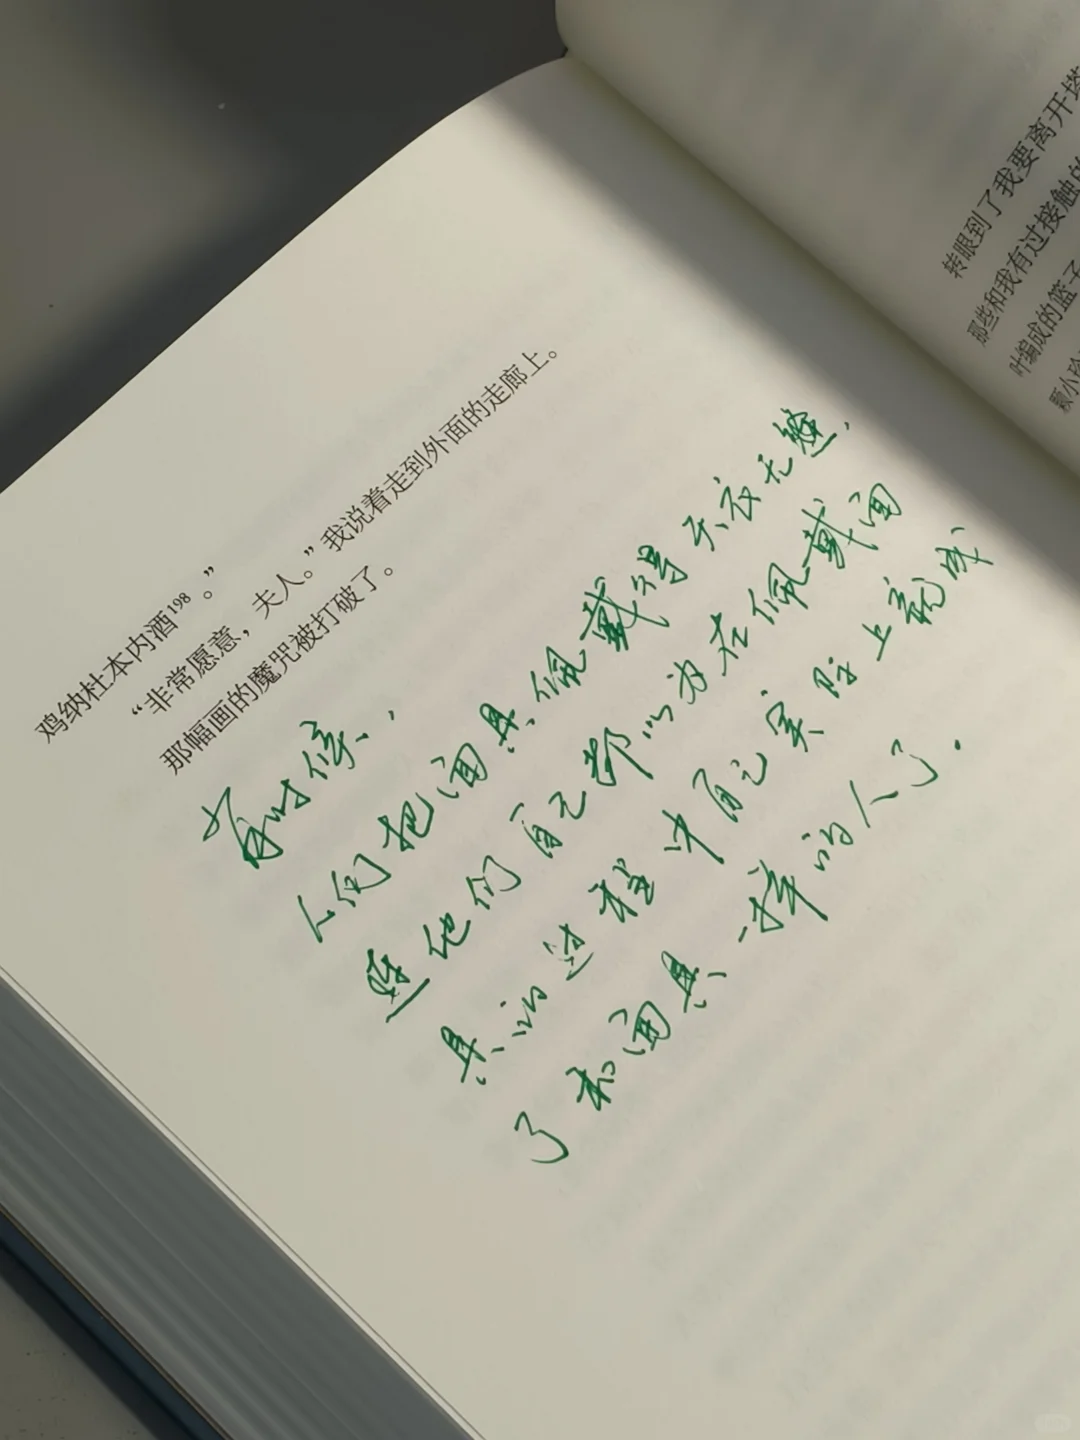 鸡纳杜本内酒198。”
“非常愿意，夫人。”我说着走到外面的走廊上。
那幅画的魔咒被打破了。
有时候，
人们把面具佩戴得天衣无缝，
连他们自己都以为在佩戴面
具的过程中自己实际上就成
了和面具一样的人了.
转眼到了我要离开塔
那些和我有过接触的
叶编成的篮子
颗小珍